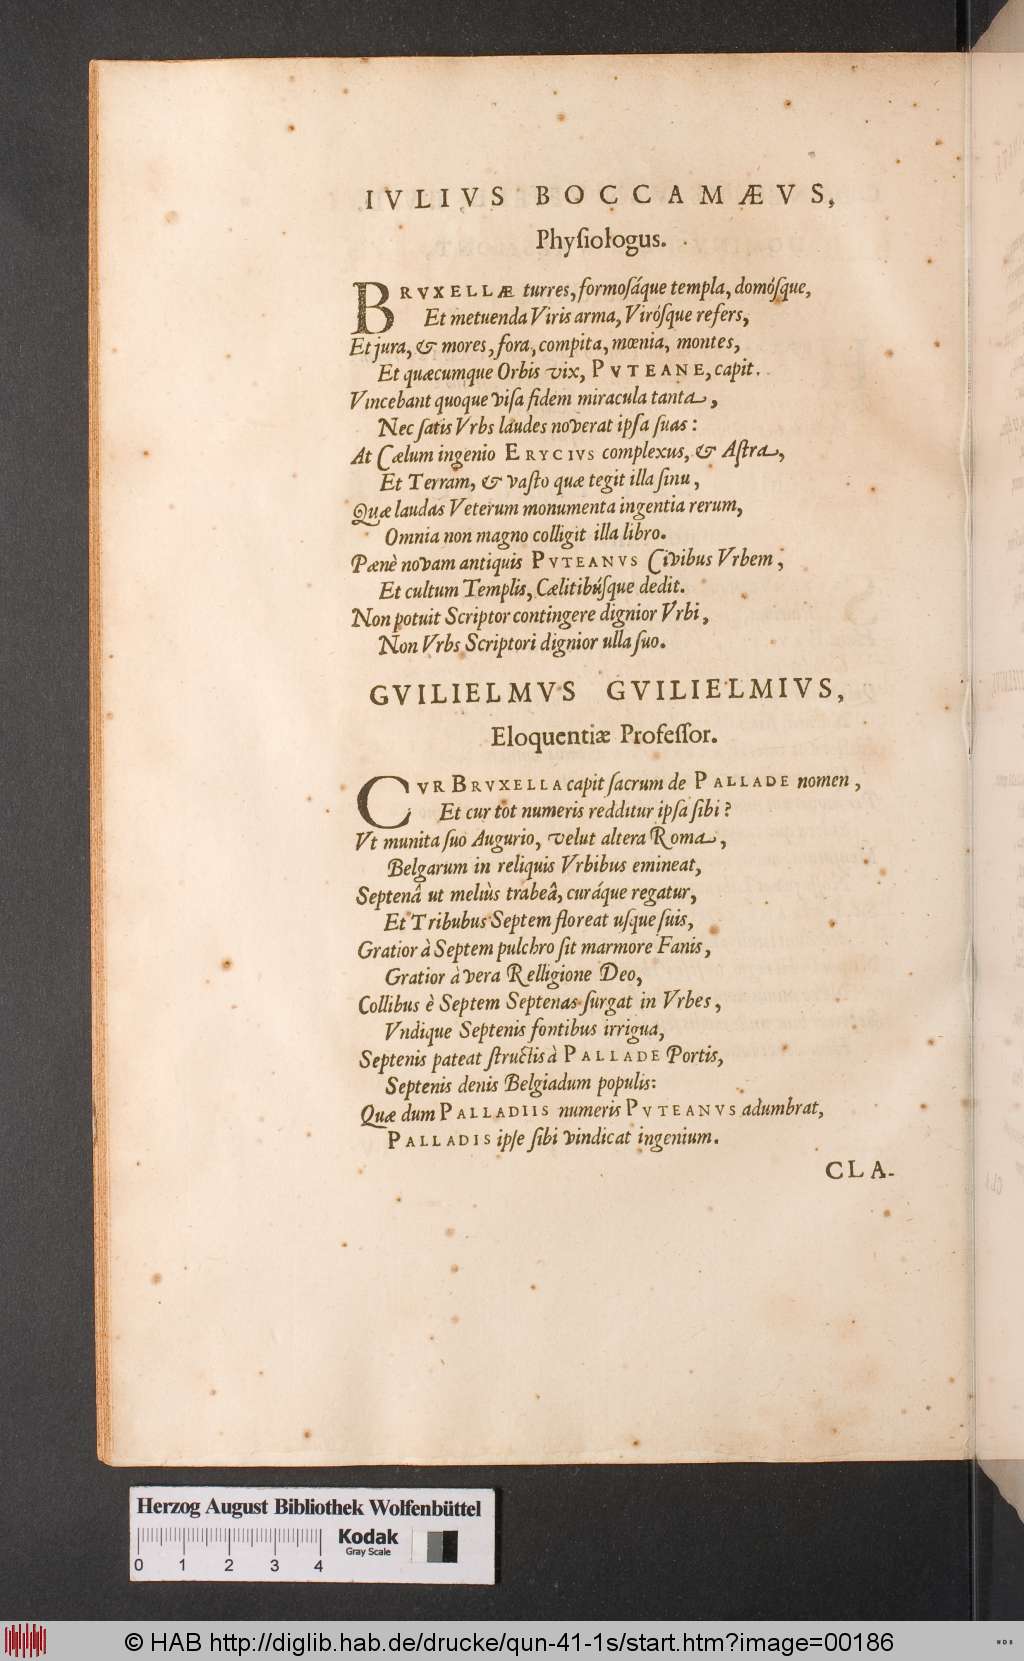 IVLIVS BOCCAMÆVS,
Phyſiologus.
BRVXELLÆ turres, formoſáque templa, domóſque,
Et metuenda Viris arma, Viróſque refers,
Et jura, & mores, fora, compita, mœnia, montes,
Et quæcumque Orbis vix, PVTEANE, capit.
Vincebant quoque viſa fidem miracula tanta,
Nec ſatis Vrbs laudes noverat ipſa ſuas:
At Cælum ingenio ERYCIVS complexus, & Aſtra,
Et Terram, & vaſto quæ tegit illa ſinu,
Quæ laudas Veterum monumenta ingentia rerum,
Omnia non magno colligit illa libro.
Pænè novam antiquis PVTEANVS Civibus Vrbem,
Et cultum Templis, Cælitibúſque dedit.
Non potuit Scriptor contingere dignior Vrbi,
Non Vrbs Scriptori dignior ulla ſuo.
GVILIELMVS GVILIELMIVS,
Eloquentiæ Profeſſor.
CVR BRVXELLA capit ſacrum de PALLADE nomen,
Et cur tot numeris redditur ipſa ſibi?
Vt munita ſuo Augurio, velut altera Roma,
Belgarum in reliquis Vrbibus emineat,
Septenâ ut meliùs trabeâ, curáque regatur,
Et Tribubus Septem floreat uſque ſuis,
Gratior à Septem pulchro ſit marmore Fanis,
Gratior à vera Relligione Deo,
Collibus è Septem Septenas ſurgat in Vrbes,
Vndique Septenis fontibus irrigua,
Septenis pateat ſtructis à PALLADE Portis,
Septenis denis Belgiadum populis:
Quæ dum PALLADIIS numeris PVTEANVS adumbrat,
PALLADIS ipſe ſibi vindicat ingenium.
CLA-
Herzog August Bibliothek Wolfenbüttel
0 1 2 3 4
Kodak
Gray Scale
© HAB http://diglib.hab.de/drucke/qun-41-1s/start.htm?image=00186